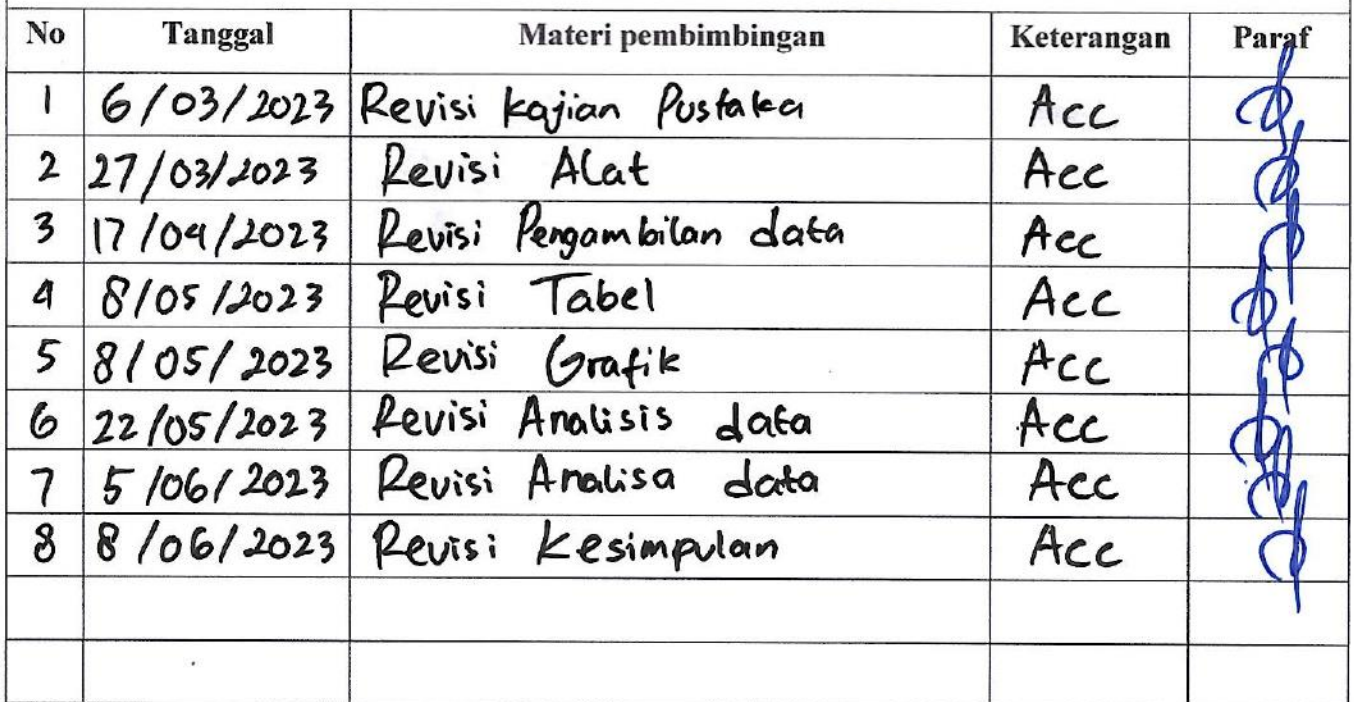 No Tanggal Materi pembimbingan Keterangan Paraf
1 6/03/2023 Revisi kajian Pustaka Acc
2 27/03/2023 Revisi Alat Acc
3 17/04/2023 Revisi Pengambilan data Acc
4 8/05/2023 Revisi Tabel Acc
5 8/05/2023 Revisi Grafik Acc
6 22/05/2023 Revisi Analisis data Acc
7 5/06/2023 Revisi Analisa data Acc
8 8/06/2023 Revisi Kesimpulan Acc